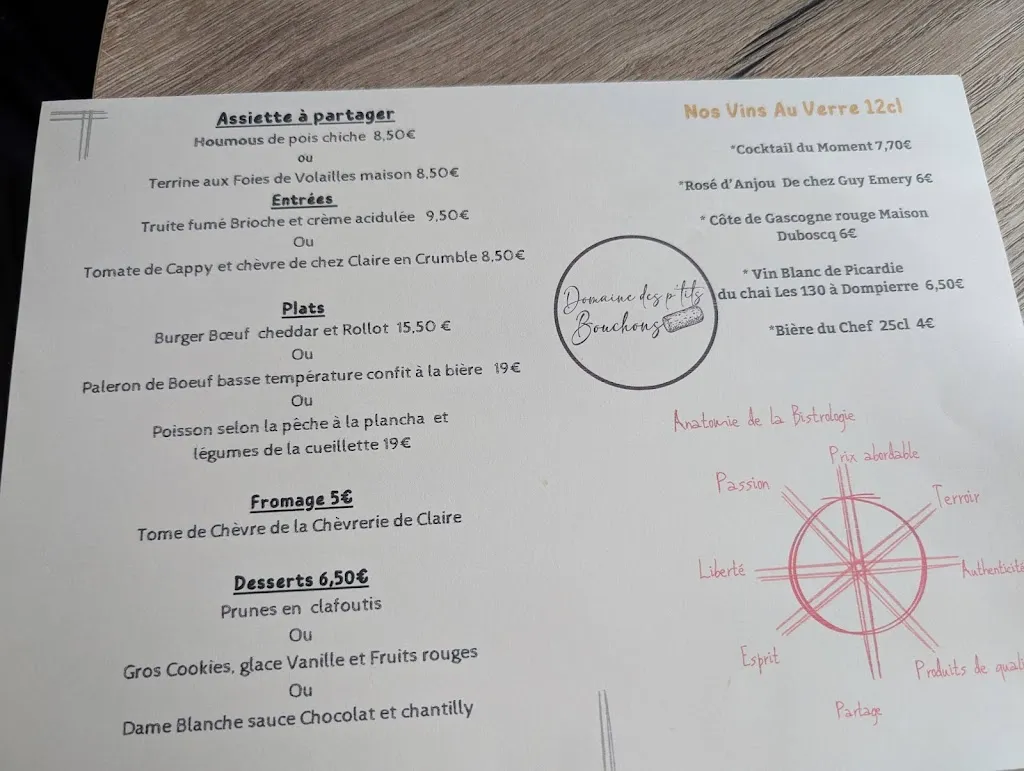 Assiette à partager
Houmous de pois chiche 8,50€
ou
Terrine aux Foies de Volailles maison 8,50€
Entrées
Truite fumé Brioche et crème acidulée 9,50€
Ou
Tomate de Cappy et chèvre de chez Claire en Crumble 8,50€
Plats
Burger Bœuf cheddar et Rollot 15,50 €
Ou
Paleron de Boeuf basse température confit à la bière 19€
Ou
Poisson selon la pêche à la plancha et
légumes de la cueillette 19€
Fromage 5€
Tome de Chèvre de la Chèvrerie de Claire
Desserts 6,50€
Prunes en clafoutis
Ou
Gros Cookies, glace Vanille et Fruits rouges
Ou
Dame Blanche sauce Chocolat et chantilly
Domaine des p'tits
Bouchons
Nos Vins Au Verre 12cl
*Cocktail du Moment 7,70€
*Rosé d'Anjou De chez Guy Emery 6€
* Côte de Gascogne rouge Maison
Duboscq 6€
* Vin Blanc de Picardie
du chai Les 130 à Dompierre 6,50€
*Bière du Chef 25cl 4€
Anatomie de la Bistrologie
Prix abordable
Passion
Terroir
Liberté
Authenticité
Esprit
Produits de quali
Partage